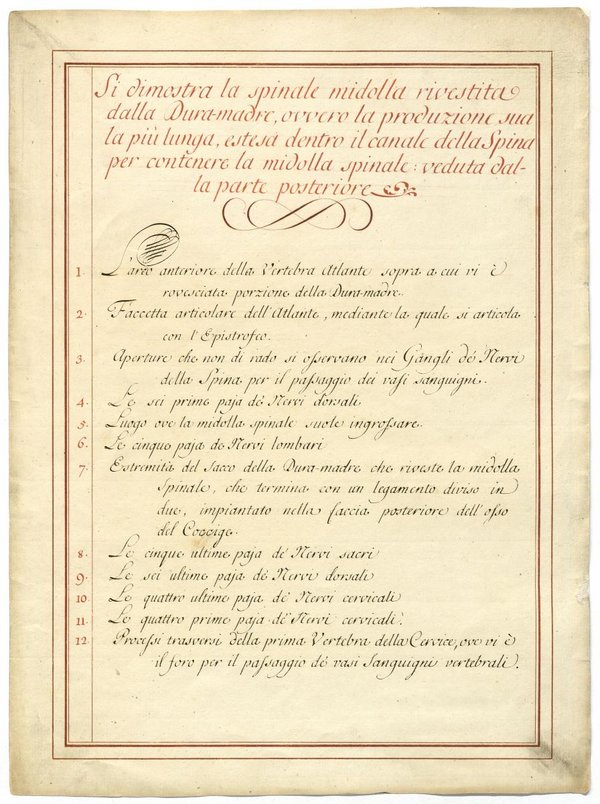 Si dimostra la spinale midolla rivestita
dalla Dura-madre, ovvero la produzione sua
la più lunga, estesa dentro il canale della Spina
per contenere la midolla spinale: veduta dal-
la parte posteriore
1. L'arco anteriore della Vertebra Atlante sopra a cui vi è
rovesciata porzione della Dura-madre.
2. Faccetta articolare dell'Atlante, mediante la quale si articola
con l'Epistrofeo.
3. Aperture che non di rado si osservano nei Gangli de' Nervi
della Spina per il passaggio dei vasi sanguigni.
4. Le sei prime paja de' Nervi dorsali.
5. Luogo ove la midolla spinale suole ingrossare.
6. Le cinque paja de Nervi lombari
7. Estremità del sacco della Dura-madre che riveste la midolla
Spinale, che termina con un legamento diviso in
due, impiantato nella faccia posteriore dell'osso
del Coccige.
8. Le cinque ultime paja de' Nervi sacri
9. Le sei ultime paja de' Nervi dorsali
10. Le quattro ultime paja de' Nervi cervicali
11. Le quattro prime paja de' Nervi cervicali.
12. Processi trasversi della prima Vertebra della Cervice, ove vi è
il foro per il passaggio de' vasi Sanguigni vertebrali.